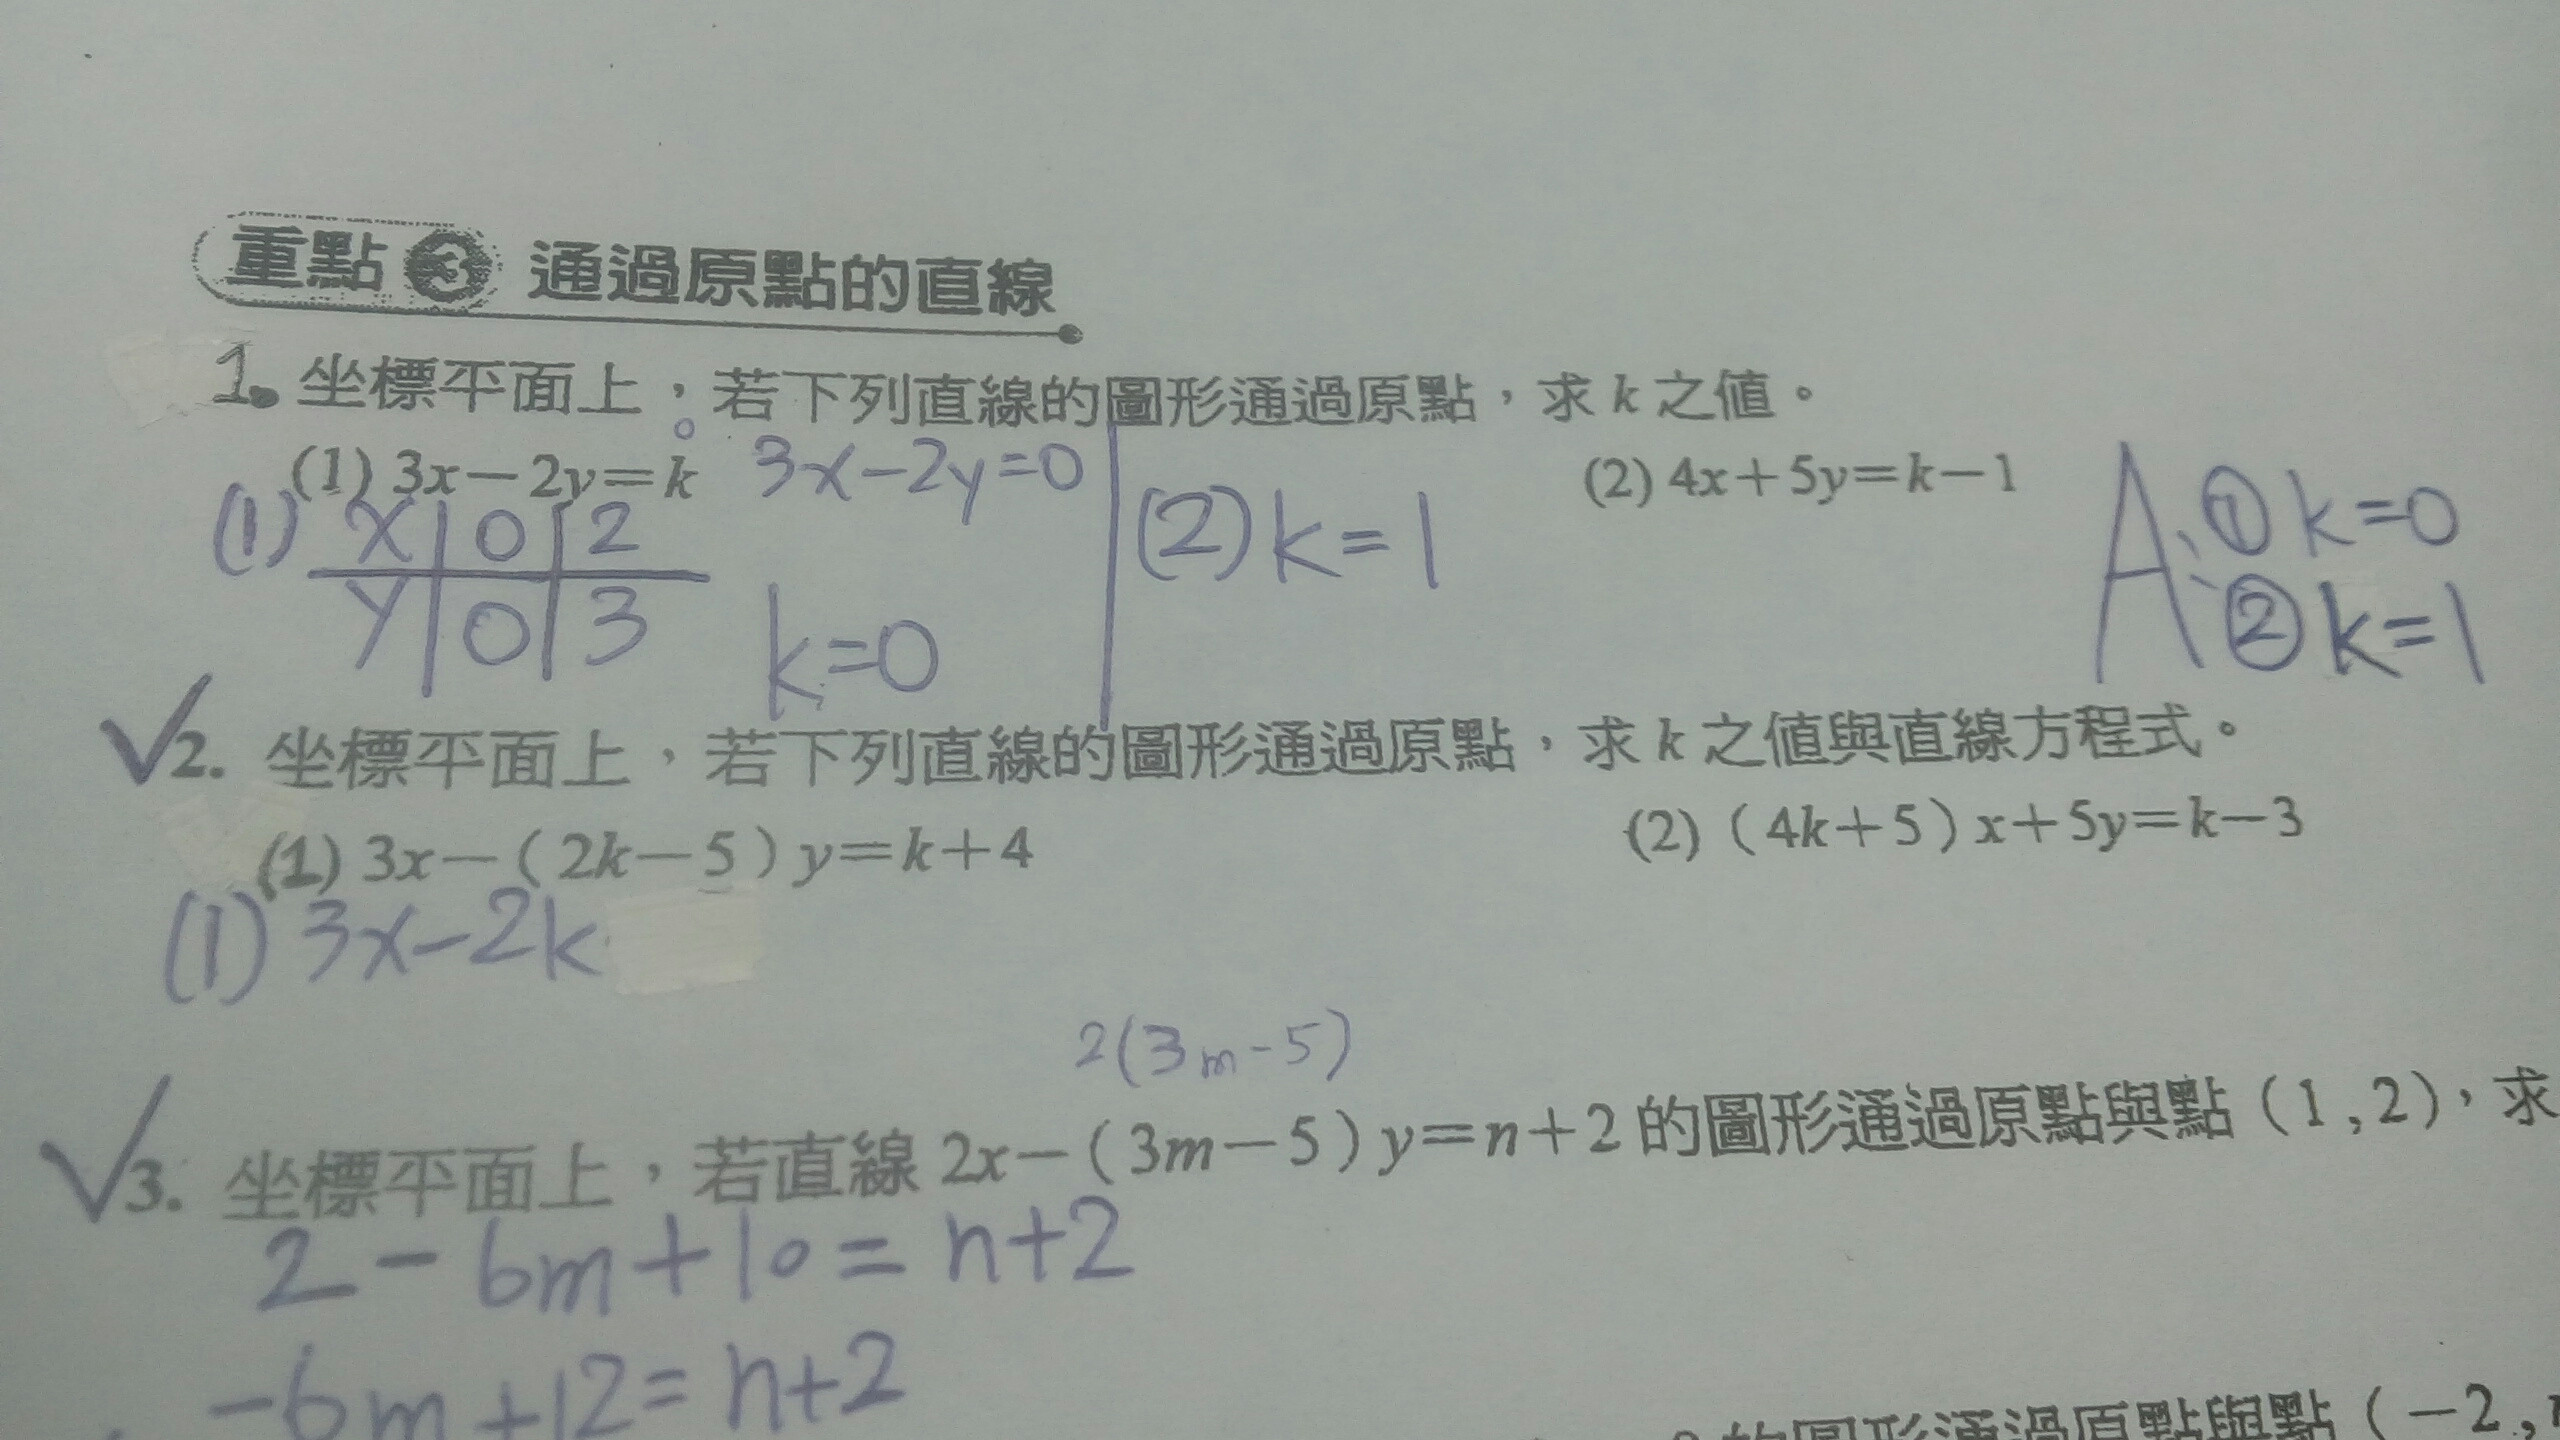 重點 3 通過原點的直線
1. 坐標平面上，若下列直線的圖形通過原點，求 k 之值。
(1) 3x－2y＝k 0 3x-2y=0 (2) 4x＋5y＝k－1
(1) x 0 2
y 0 3
k=0
(2) k=1
A: ① k=0
② k=1
✓2. 坐標平面上，若下列直線的圖形通過原點，求 k 之值與直線方程式。
(1) 3x－（2k－5）y＝k＋4 (2)（4k＋5）x＋5y＝k－3
(1) 3x-2k
2(3m-5)
✓3. 坐標平面上，若直線 2x－（3m－5）y＝n＋2 的圖形通過原點與點（1 , 2），求
2-6m+10=n+2
-6m+12=n+2
的圖形通過原點與點（－2 ,